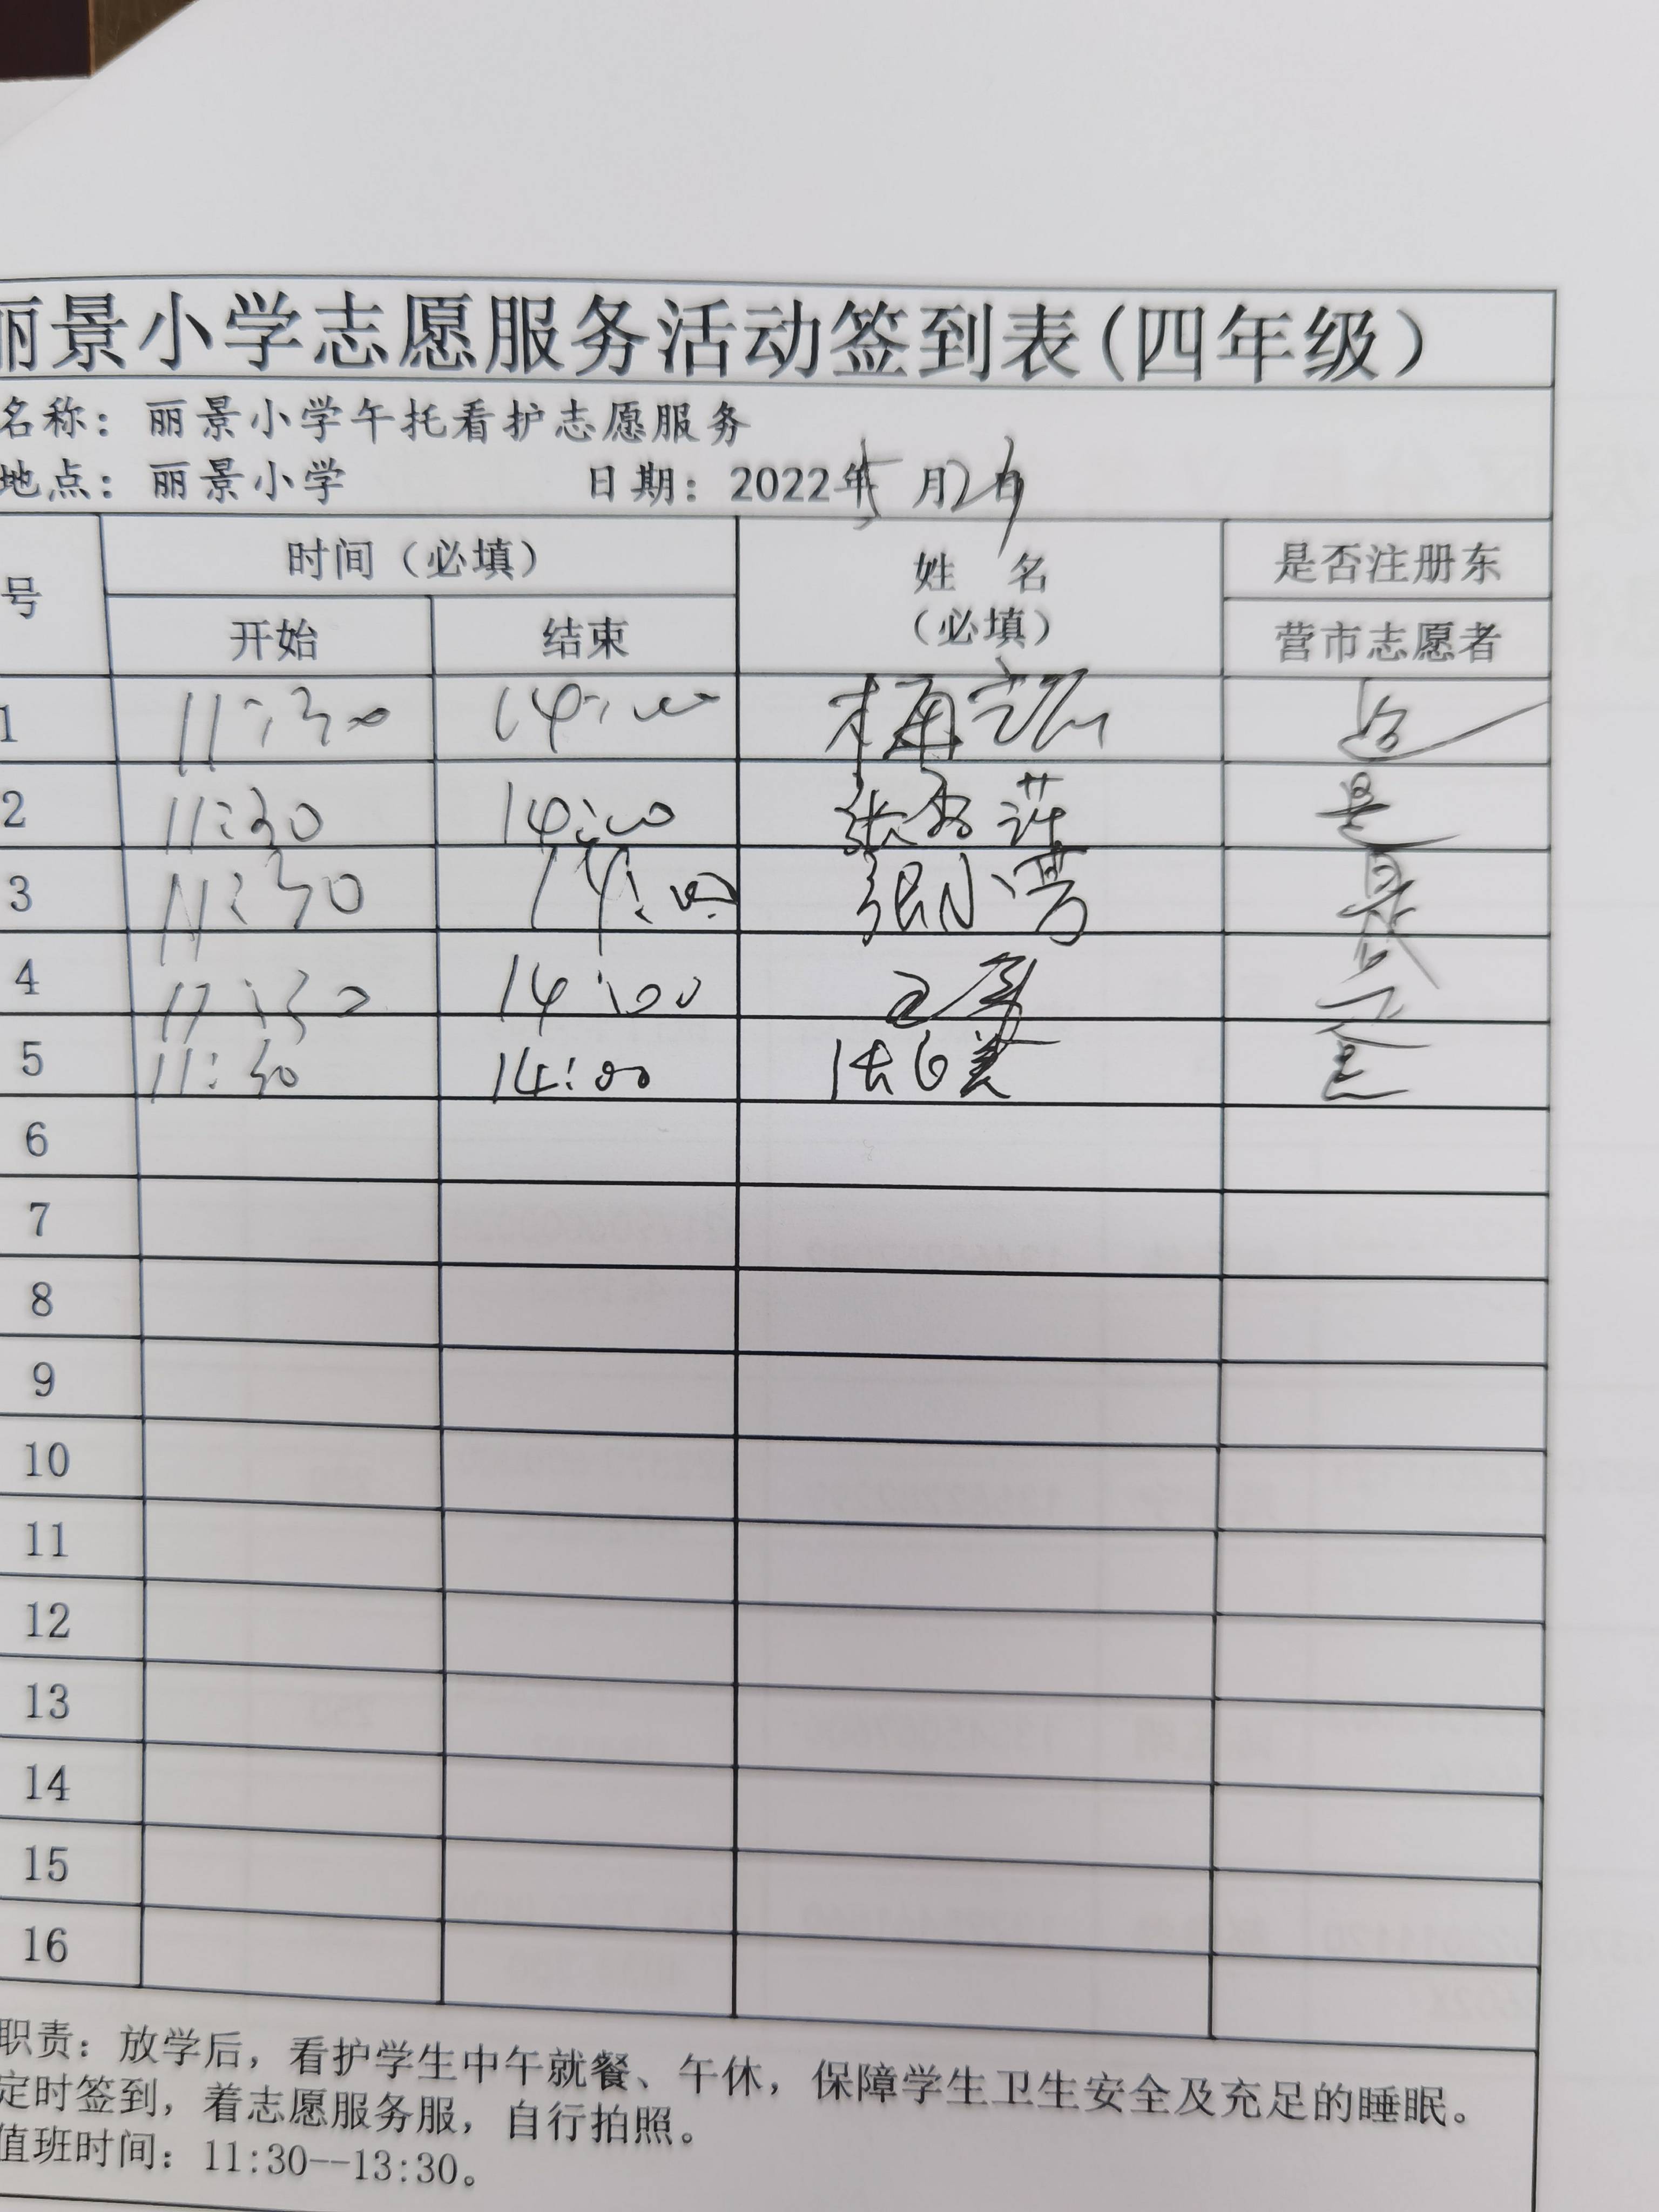 丽景小学志愿服务活动签到表(四年级)
名称：丽景小学午托看护志愿服务
地点：丽景小学 日期：2022年5月2日
号 时间（必填） 姓 名（必填） 是否注册东营市志愿者
开始 结束
1 11:30 14:00 是
2 11:30 14:00 张秀萍 是
3 11:30 14:00 张小芳 是
4 11:30 14:00
5 11:30 14:00 是
6
7
8
9
10
11
12
13
14
15
16
职责：放学后，看护学生中午就餐、午休，保障学生卫生安全及充足的睡眠。
定时签到，着志愿服务服，自行拍照。
值班时间：11:30--13:30。